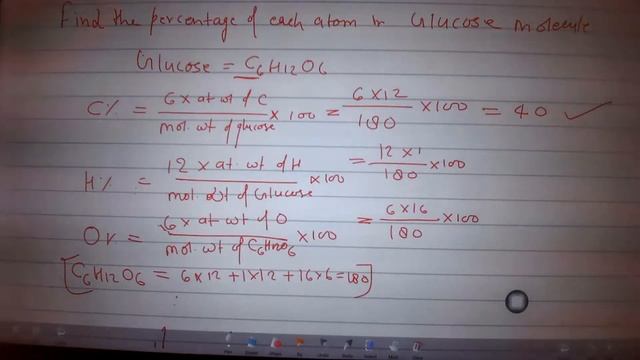 Find the percentage of each atom in Glucose molecule
Glucose = C6H12O6
C% = 6 x at wt of C / mol. wt of glucose x 100 = 6 x 12 / 180 x 100 = 40 ✓
H% = 12 x at wt of H / mol wt of Glucose x 100 = 12 x 1 / 180 x 100
O% = 6 x at wt of O / mol. wt of C6H12O6 x 100 = 6 x 16 / 180 x 100
[C6H12O6 = 6x12 + 1x12 + 16x6 = 180]